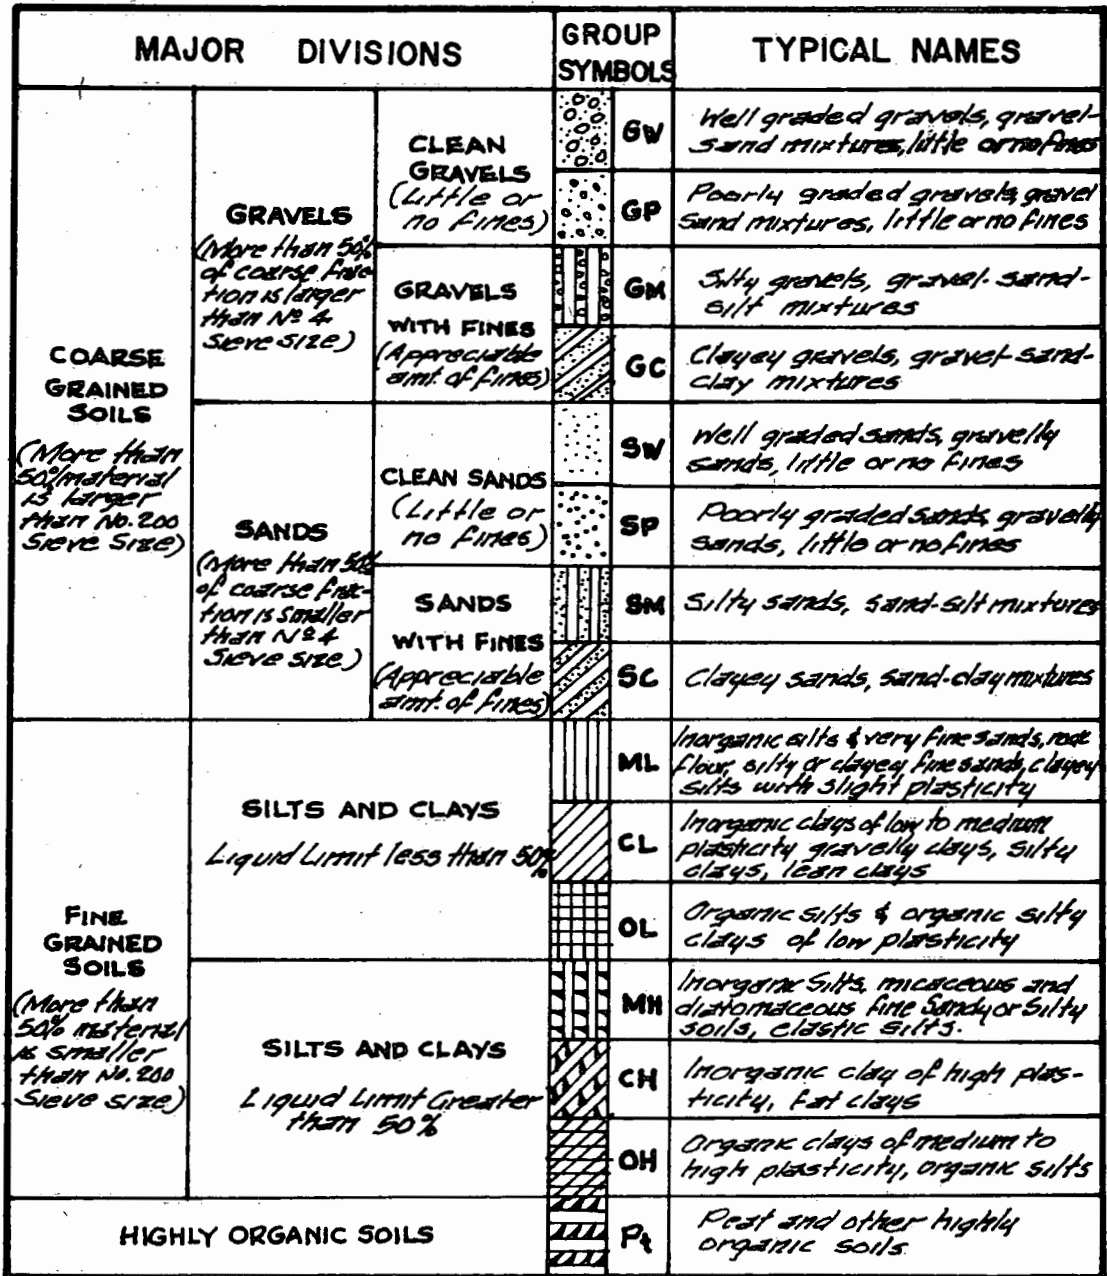 MAJOR DIVISIONS
GROUP
SYMBOLS
TYPICAL NAMES
COARSE
GRAINED
SOILS
(More than
50% material
is larger
than No. 200
Sieve Size)
GRAVELS
(More than 50%
of coarse frac-
tion is larger
than Nº 4
Sieve size)
CLEAN
GRAVELS
(Little or
no fines)
GW
Well graded gravels, gravel-
sand mixtures, little or no fines
GP
Poorly graded gravels, gravel
sand mixtures, little or no fines
GRAVELS
WITH FINES
(Appreciable
amt. of fines)
GM
Silty gravels, gravel-sand-
silt mixtures
GC
Clayey gravels, gravel-sand-
clay mixtures
SANDS
(More than 50%
of coarse frac-
tion is smaller
than Nº 4
Sieve size)
CLEAN SANDS
(Little or
no fines)
SW
Well graded sands, gravelly
sands, little or no fines
SP
Poorly graded sands, gravelly
sands, little or no fines
SANDS
WITH FINES
(Appreciable
amt. of fines)
SM
Silty sands, sand-silt mixtures
SC
Clayey sands, sand-clay mixtures
FINE
GRAINED
SOILS
(More than
50% material
is smaller
than No. 200
Sieve size)
SILTS AND CLAYS
Liquid Limit less than 50%
ML
Inorganic silts & very fine sands, rock
flour, silty or clayey fine sands, clayey
silts with slight plasticity
CL
Inorganic clays of low to medium
plasticity gravelly clays, silty
clays, lean clays
OL
Organic silts & organic silty
clays of low plasticity
SILTS AND CLAYS
Liquid Limit Greater
than 50%
MH
Inorganic Silts, micaceous and
diatomaceous fine Sandy or Silty
soils, elastic silts.
CH
Inorganic clay of high plas-
ticity, fat clays
OH
Organic clays of medium to
high plasticity, organic silts
HIGHLY ORGANIC SOILS
Pt
Peat and other highly
organic soils.